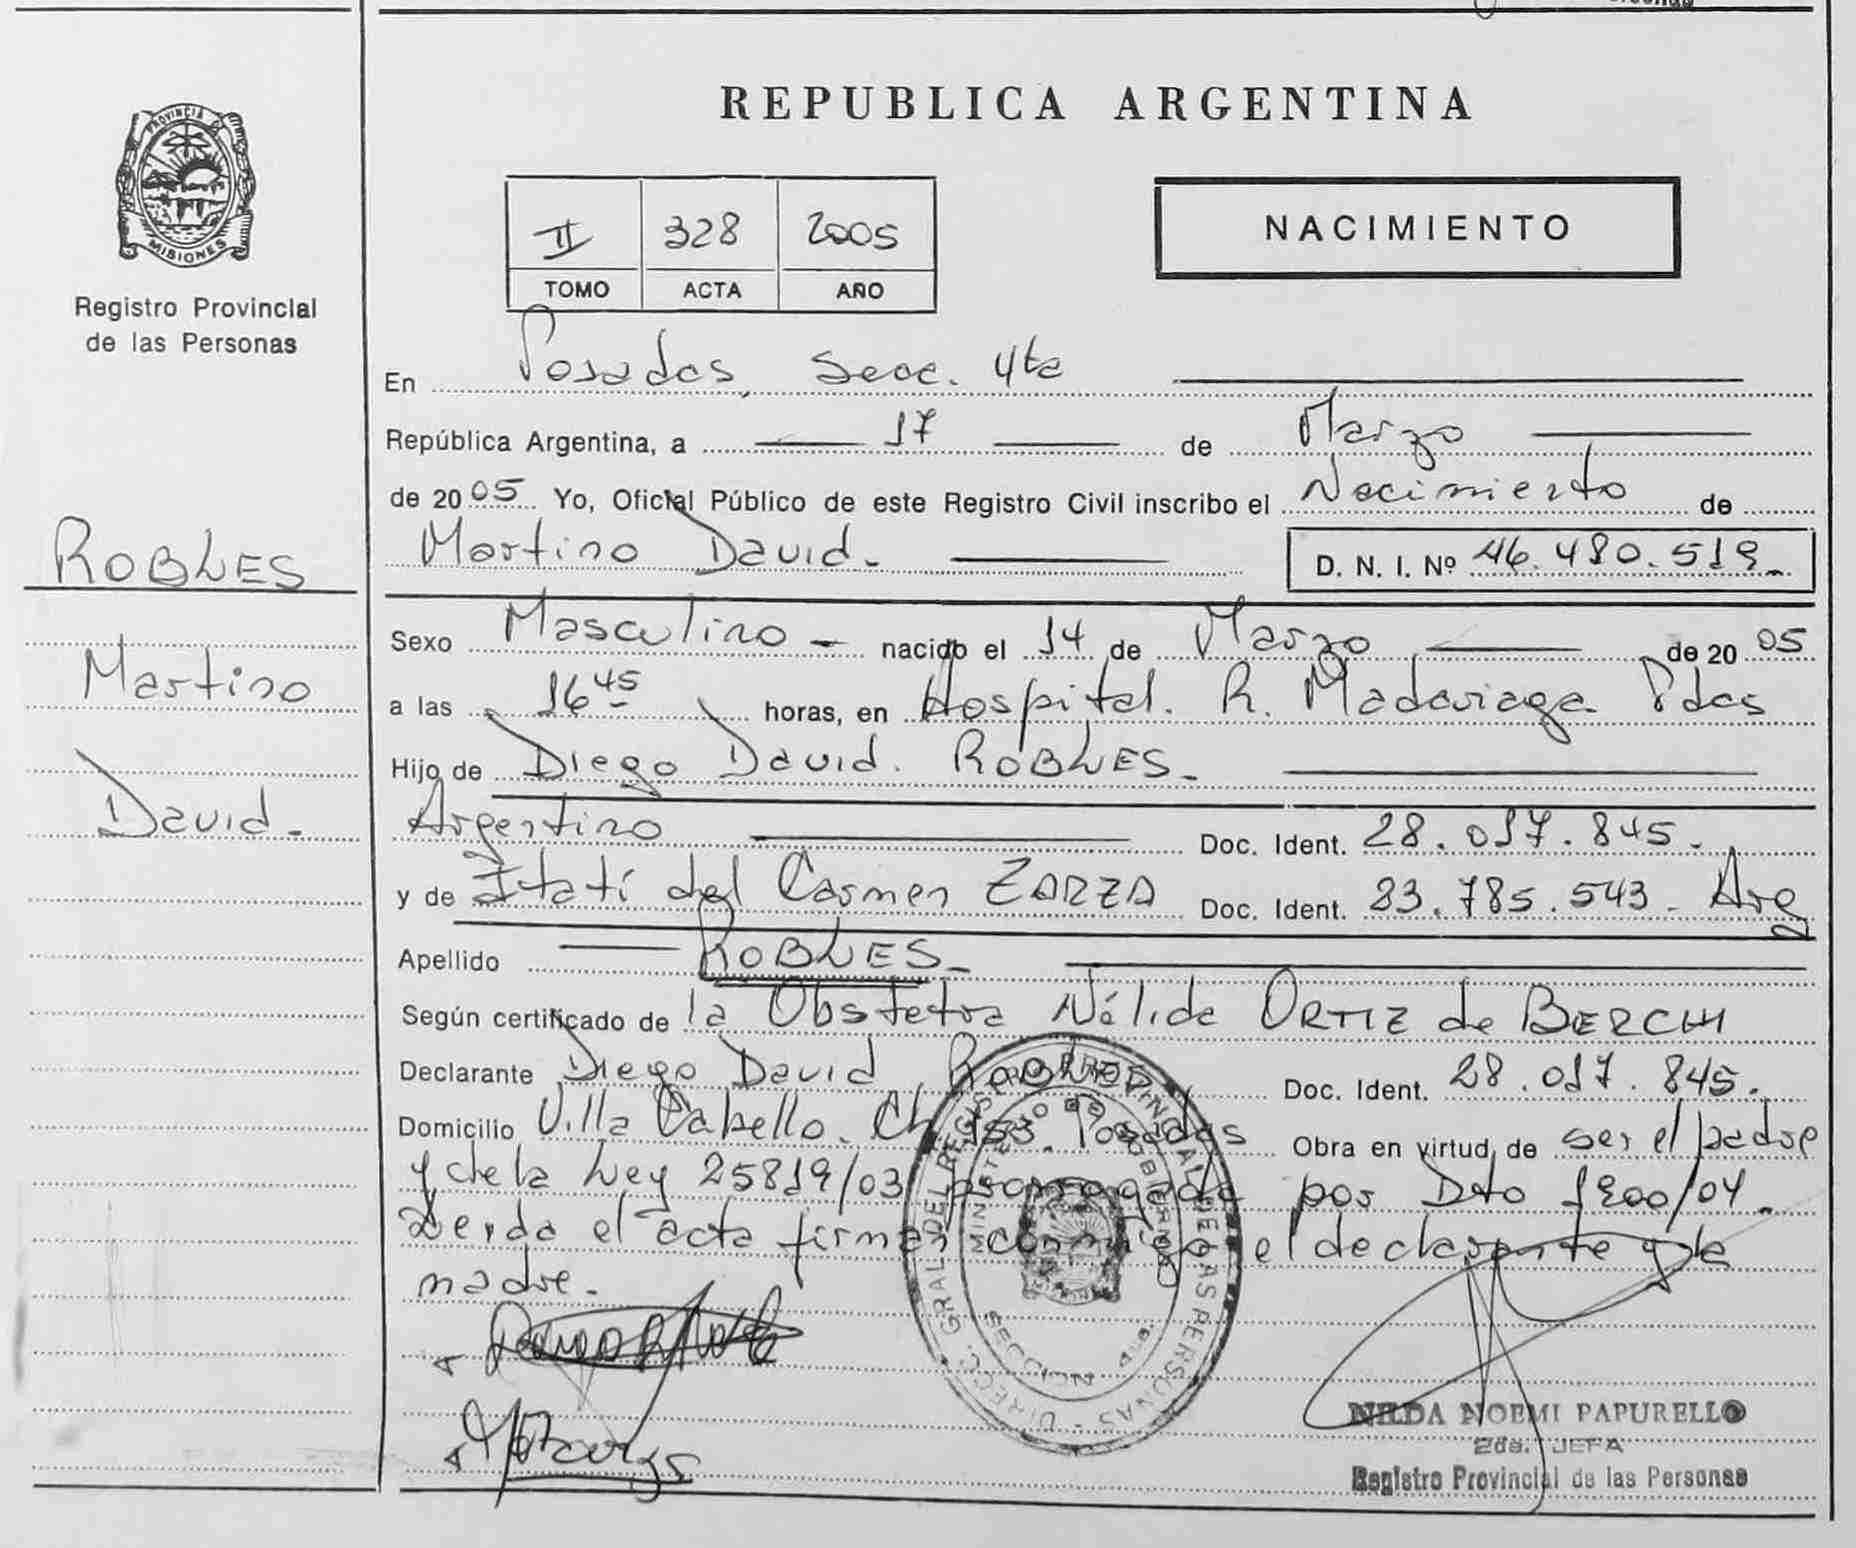 REPUBLICA ARGENTINA
PROVINCIA D
MISIONES
Registro Provincial
de las Personas
II 328 2005
TOMO ACTA AÑO
NACIMIENTO
En Posadas, Secc. 4ta
República Argentina, a 17 de Marzo
de 2005 Yo, Oficial Público de este Registro Civil inscribo el Nacimiento de
Martino David.
D. N. I. Nº 46.480.519.
ROBLES
Martino
David.
Sexo Masculino nacido el 14 de Marzo de 2005
a las 16 45 horas, en Hospital. R. Madariaga Pdas
Hijo de Diego David. ROBLES.
Argentino Doc. Ident. 28.017.845.
y de Itatí del Carmen ZARZA Doc. Ident. 23.785.543. Arg
Apellido ROBLES.
Según certificado de la Obstetra Nélida ORTIZ de BERCHI
Declarante Diego David ROBLES Doc. Ident. 28.017.845.
Domicilio Villa Cabello. Ch 153. Posadas Obra en virtud de ser el padre
y de la Ley 25819/03 prorrogada por Dto 1200/04.
Leida el acta firman conmigo el declarante y la
madre.
DIRECC. GRAL DEL REGISTRO PROVINCIAL DE LAS PERSONAS
MINISTERIO DE GOBIERNO
SECCION 4ta.
NILDA NOEMI PAPURELLO
2da. JEFA
Registro Provincial de las Personas